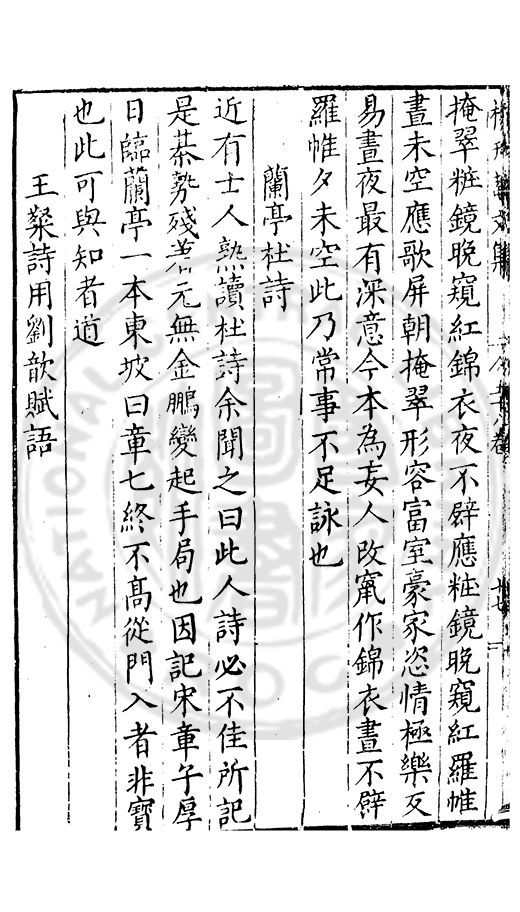 掩翠粧鏡晚窺紅錦衣夜不襞應粧鏡晚窺紅羅帷
晝未空應歌屏朝掩翠形容富室豪家恣情極樂反
易晝夜最有深意今本為妄人改竄作錦衣晝不襞
羅帷夕未空此乃常事不足詠也
蘭亭杜詩
近有士人熟讀杜詩余聞之曰此人詩必不佳所記
是棊勢殘着元無金鵬變起手局也因記宋章子厚
日臨蘭亭一本東坡曰章七終不高從門入者非寶
也此可與知者道
王粲詩用劉歆賦語